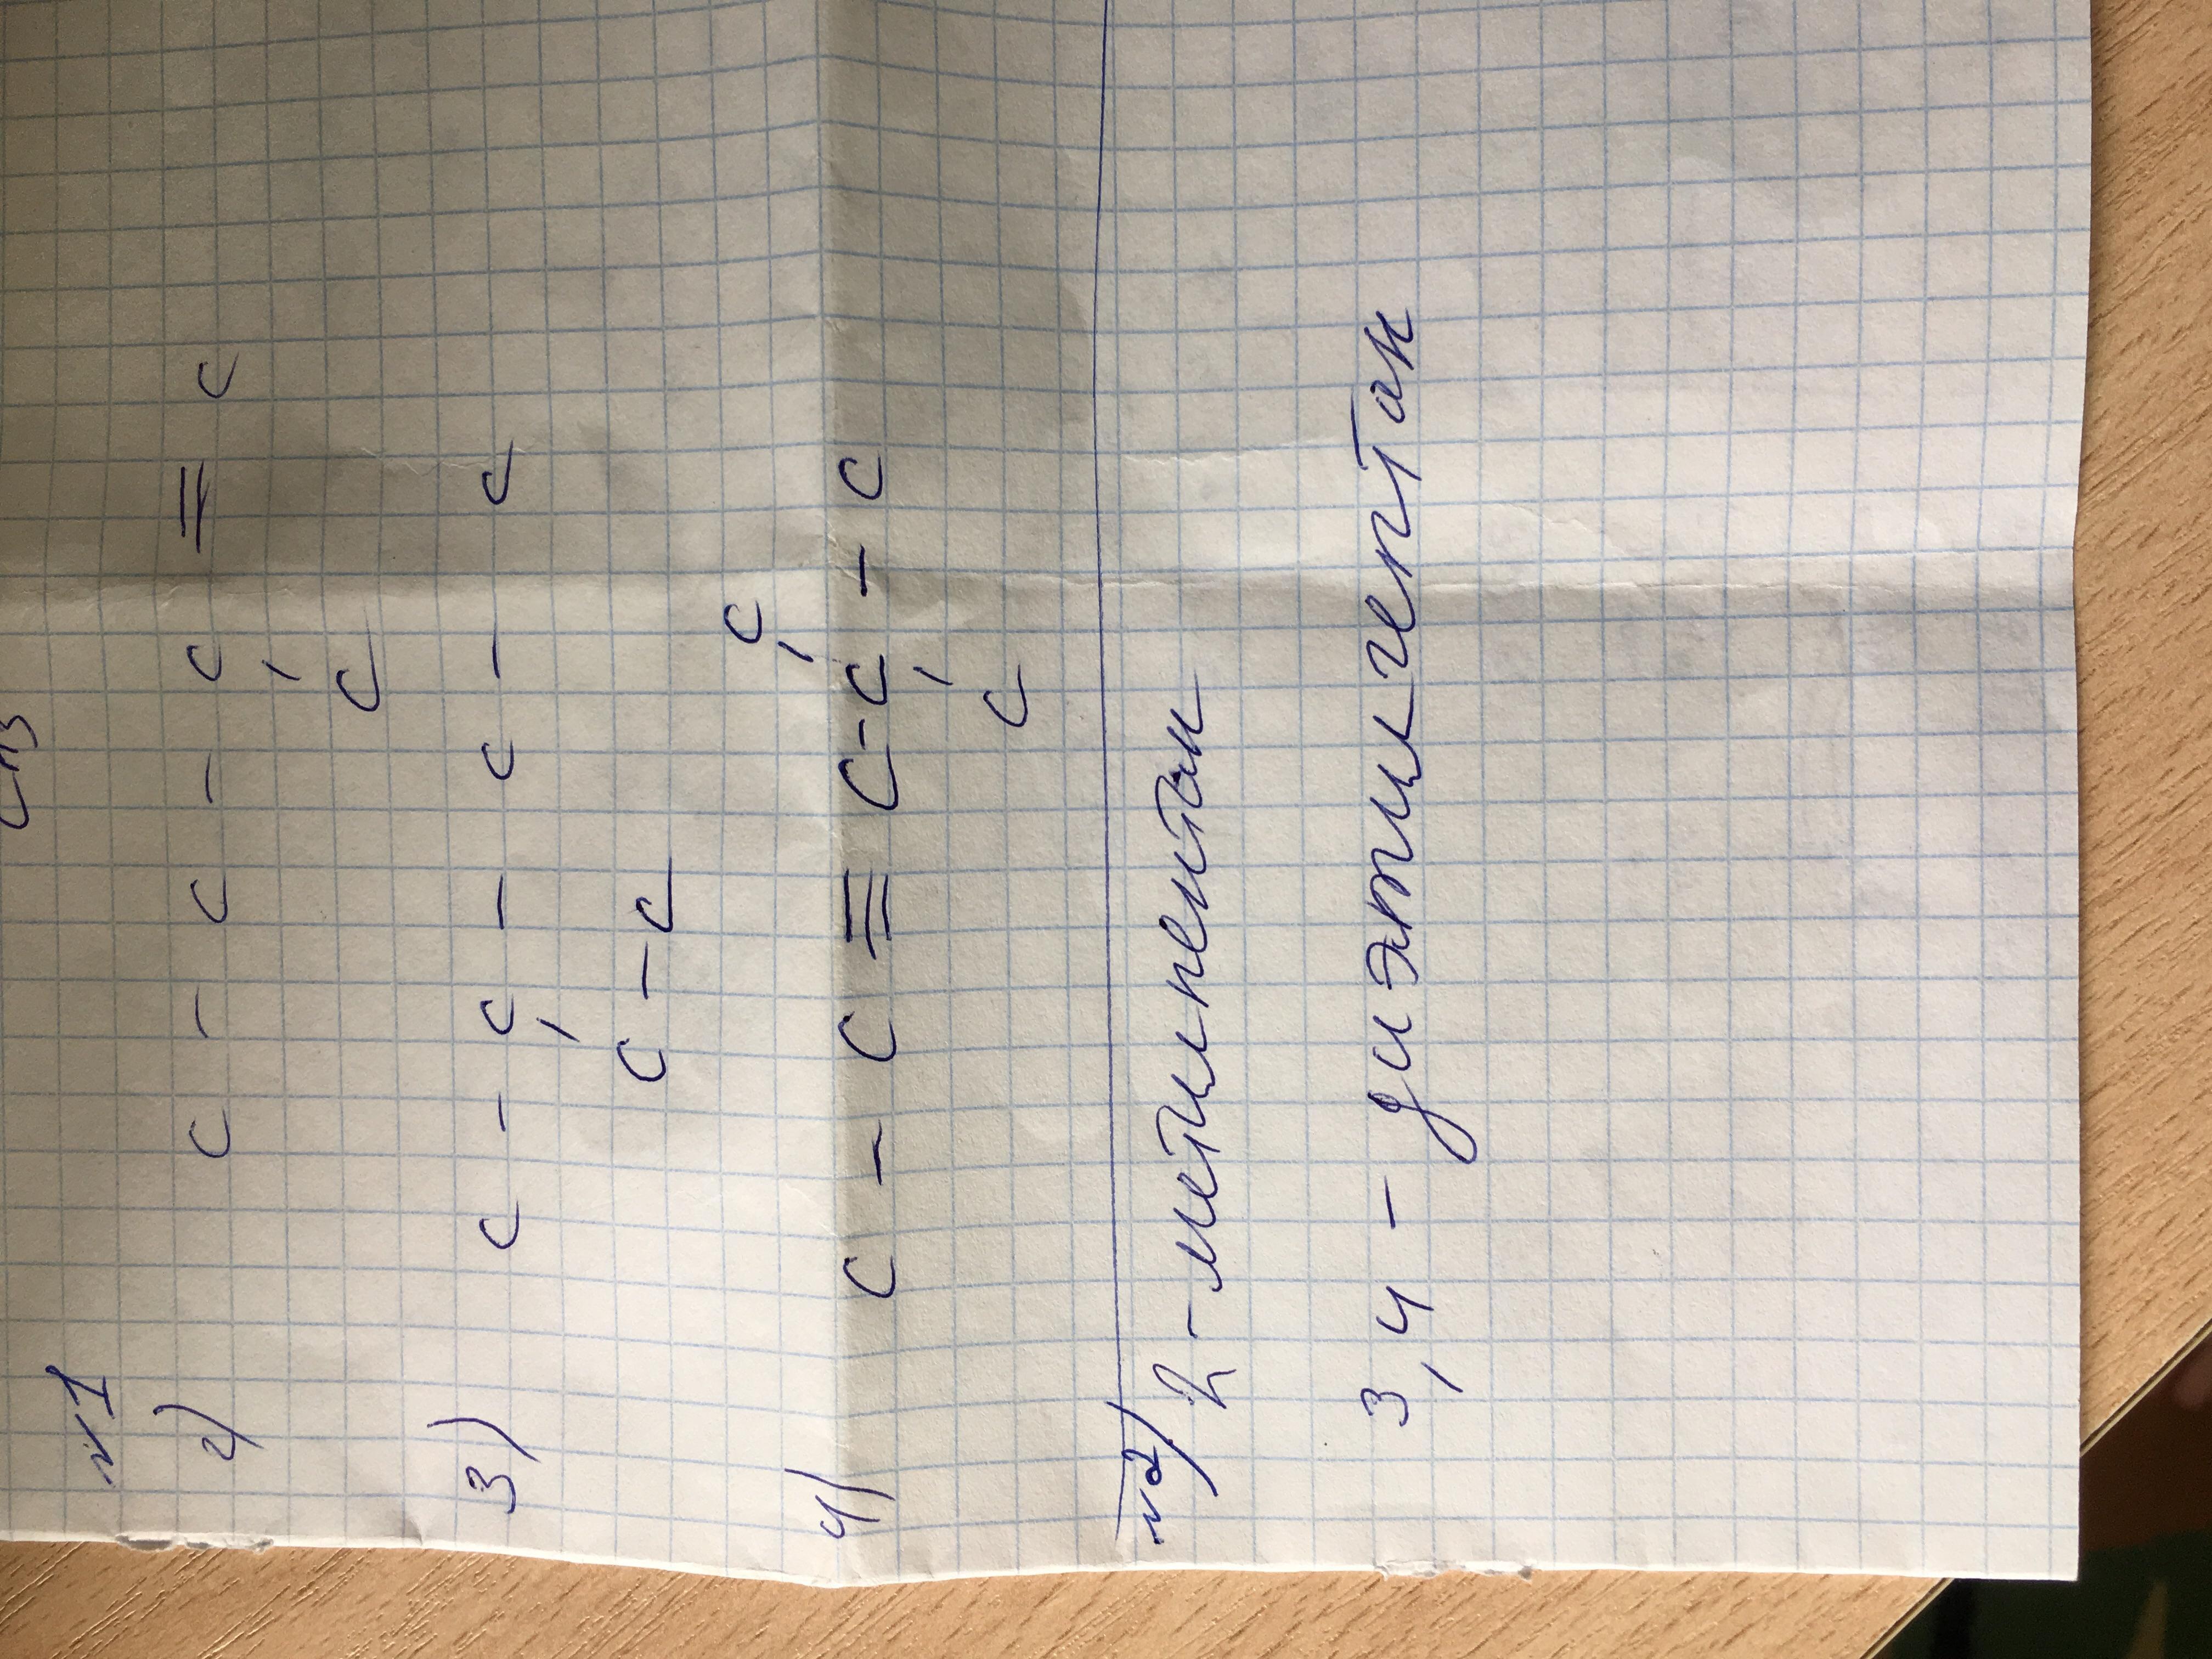 CH3
№1
2) C - C - C - C = C
C
3) C - C - C - C
C - C
C
4) C - C ≡ C - C - C
C
№2) 2 - метилпентан
3,4 - диэтилгептан